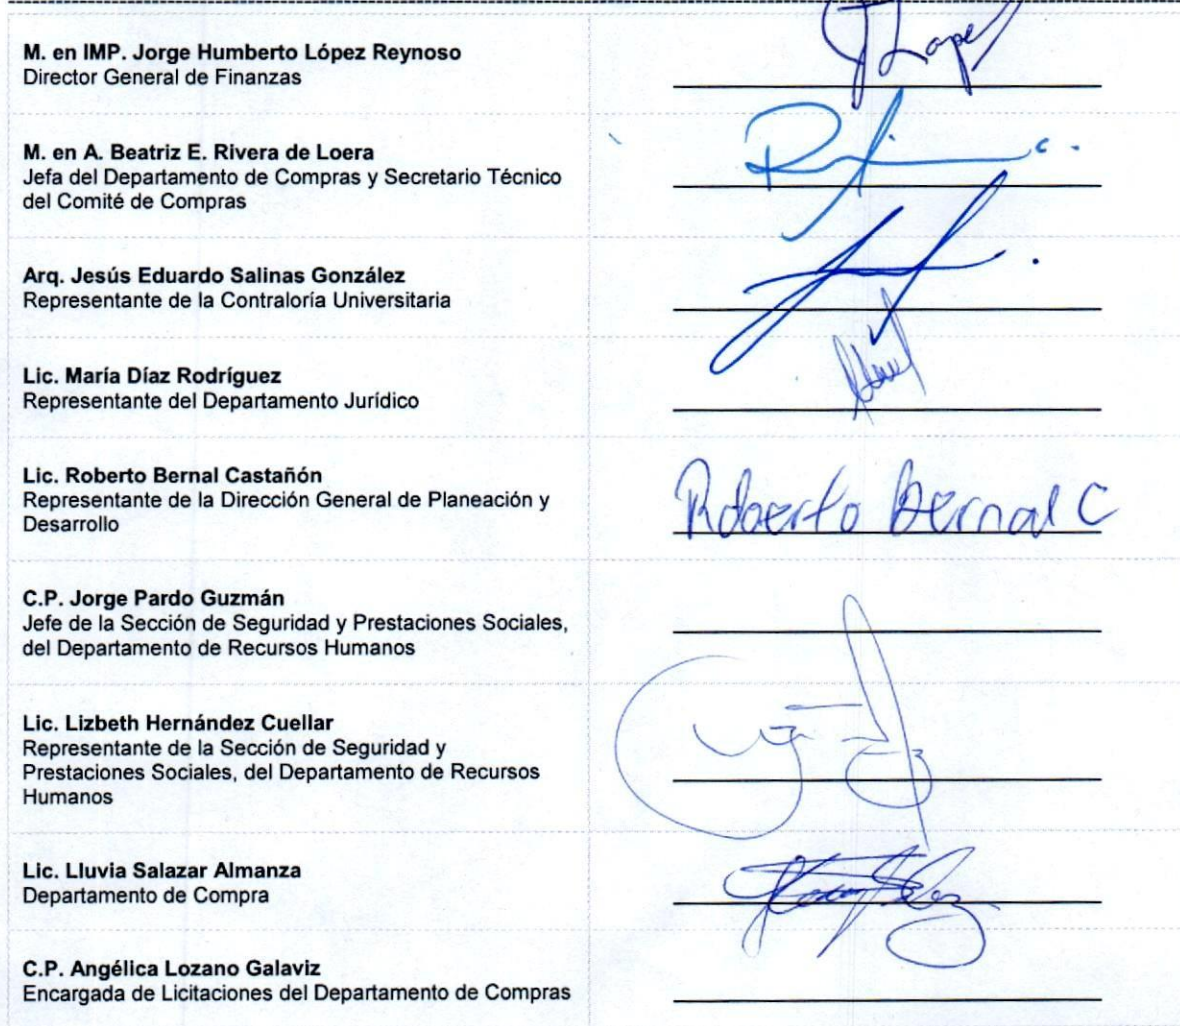 M. en IMP. Jorge Humberto López Reynoso
Director General de Finanzas
J Lopez
M. en A. Beatriz E. Rivera de Loera
Jefa del Departamento de Compras y Secretario Técnico
del Comité de Compras
Arq. Jesús Eduardo Salinas González
Representante de la Contraloría Universitaria
Lic. María Díaz Rodríguez
Representante del Departamento Jurídico
Lic. Roberto Bernal Castañón
Representante de la Dirección General de Planeación y
Desarrollo
Roberto Bernal C
C.P. Jorge Pardo Guzmán
Jefe de la Sección de Seguridad y Prestaciones Sociales,
del Departamento de Recursos Humanos
Lic. Lizbeth Hernández Cuellar
Representante de la Sección de Seguridad y
Prestaciones Sociales, del Departamento de Recursos
Humanos
Lic. Lluvia Salazar Almanza
Departamento de Compra
C.P. Angélica Lozano Galaviz
Encargada de Licitaciones del Departamento de Compras